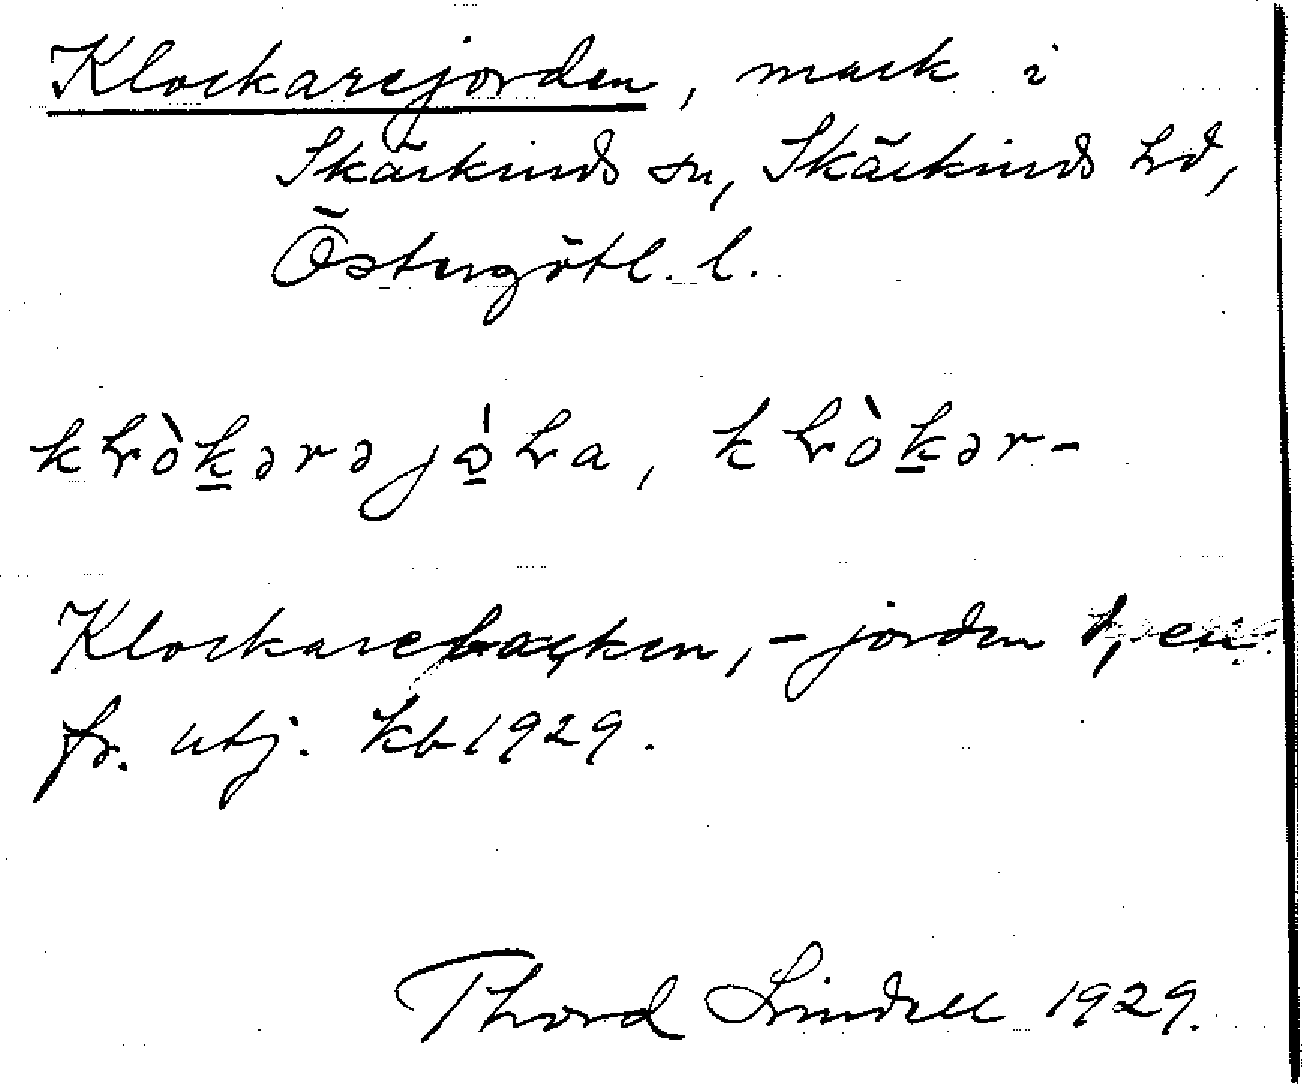 Klockarejorden, mark i
Skärkinds sn, Skärkinds hd,
Östergötl. l.
kḷòk̲ərəjo̲̍ḷa, kḷòk̲ər-
Klockarebacken, -jorden
fr. utj. kb 1929.
Thord Lindell 1929.